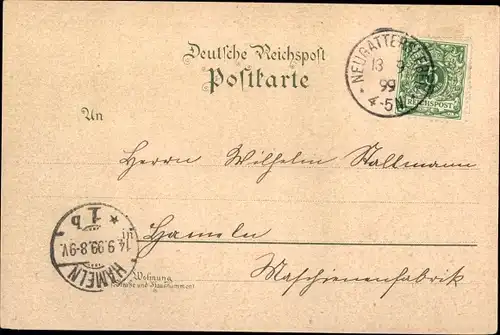 Deutsche Reichspost
Postkarte
NEUGATTERSLEBEN
13 9
99
4-5N
REICHSPOST
An
Herrn Wilhelm Stallmann
in Hameln
Maschienenfabrik
Wohnung
(Strasse und Hausnummer)
HAMELN
14.9.99.8-9V.
* 1b